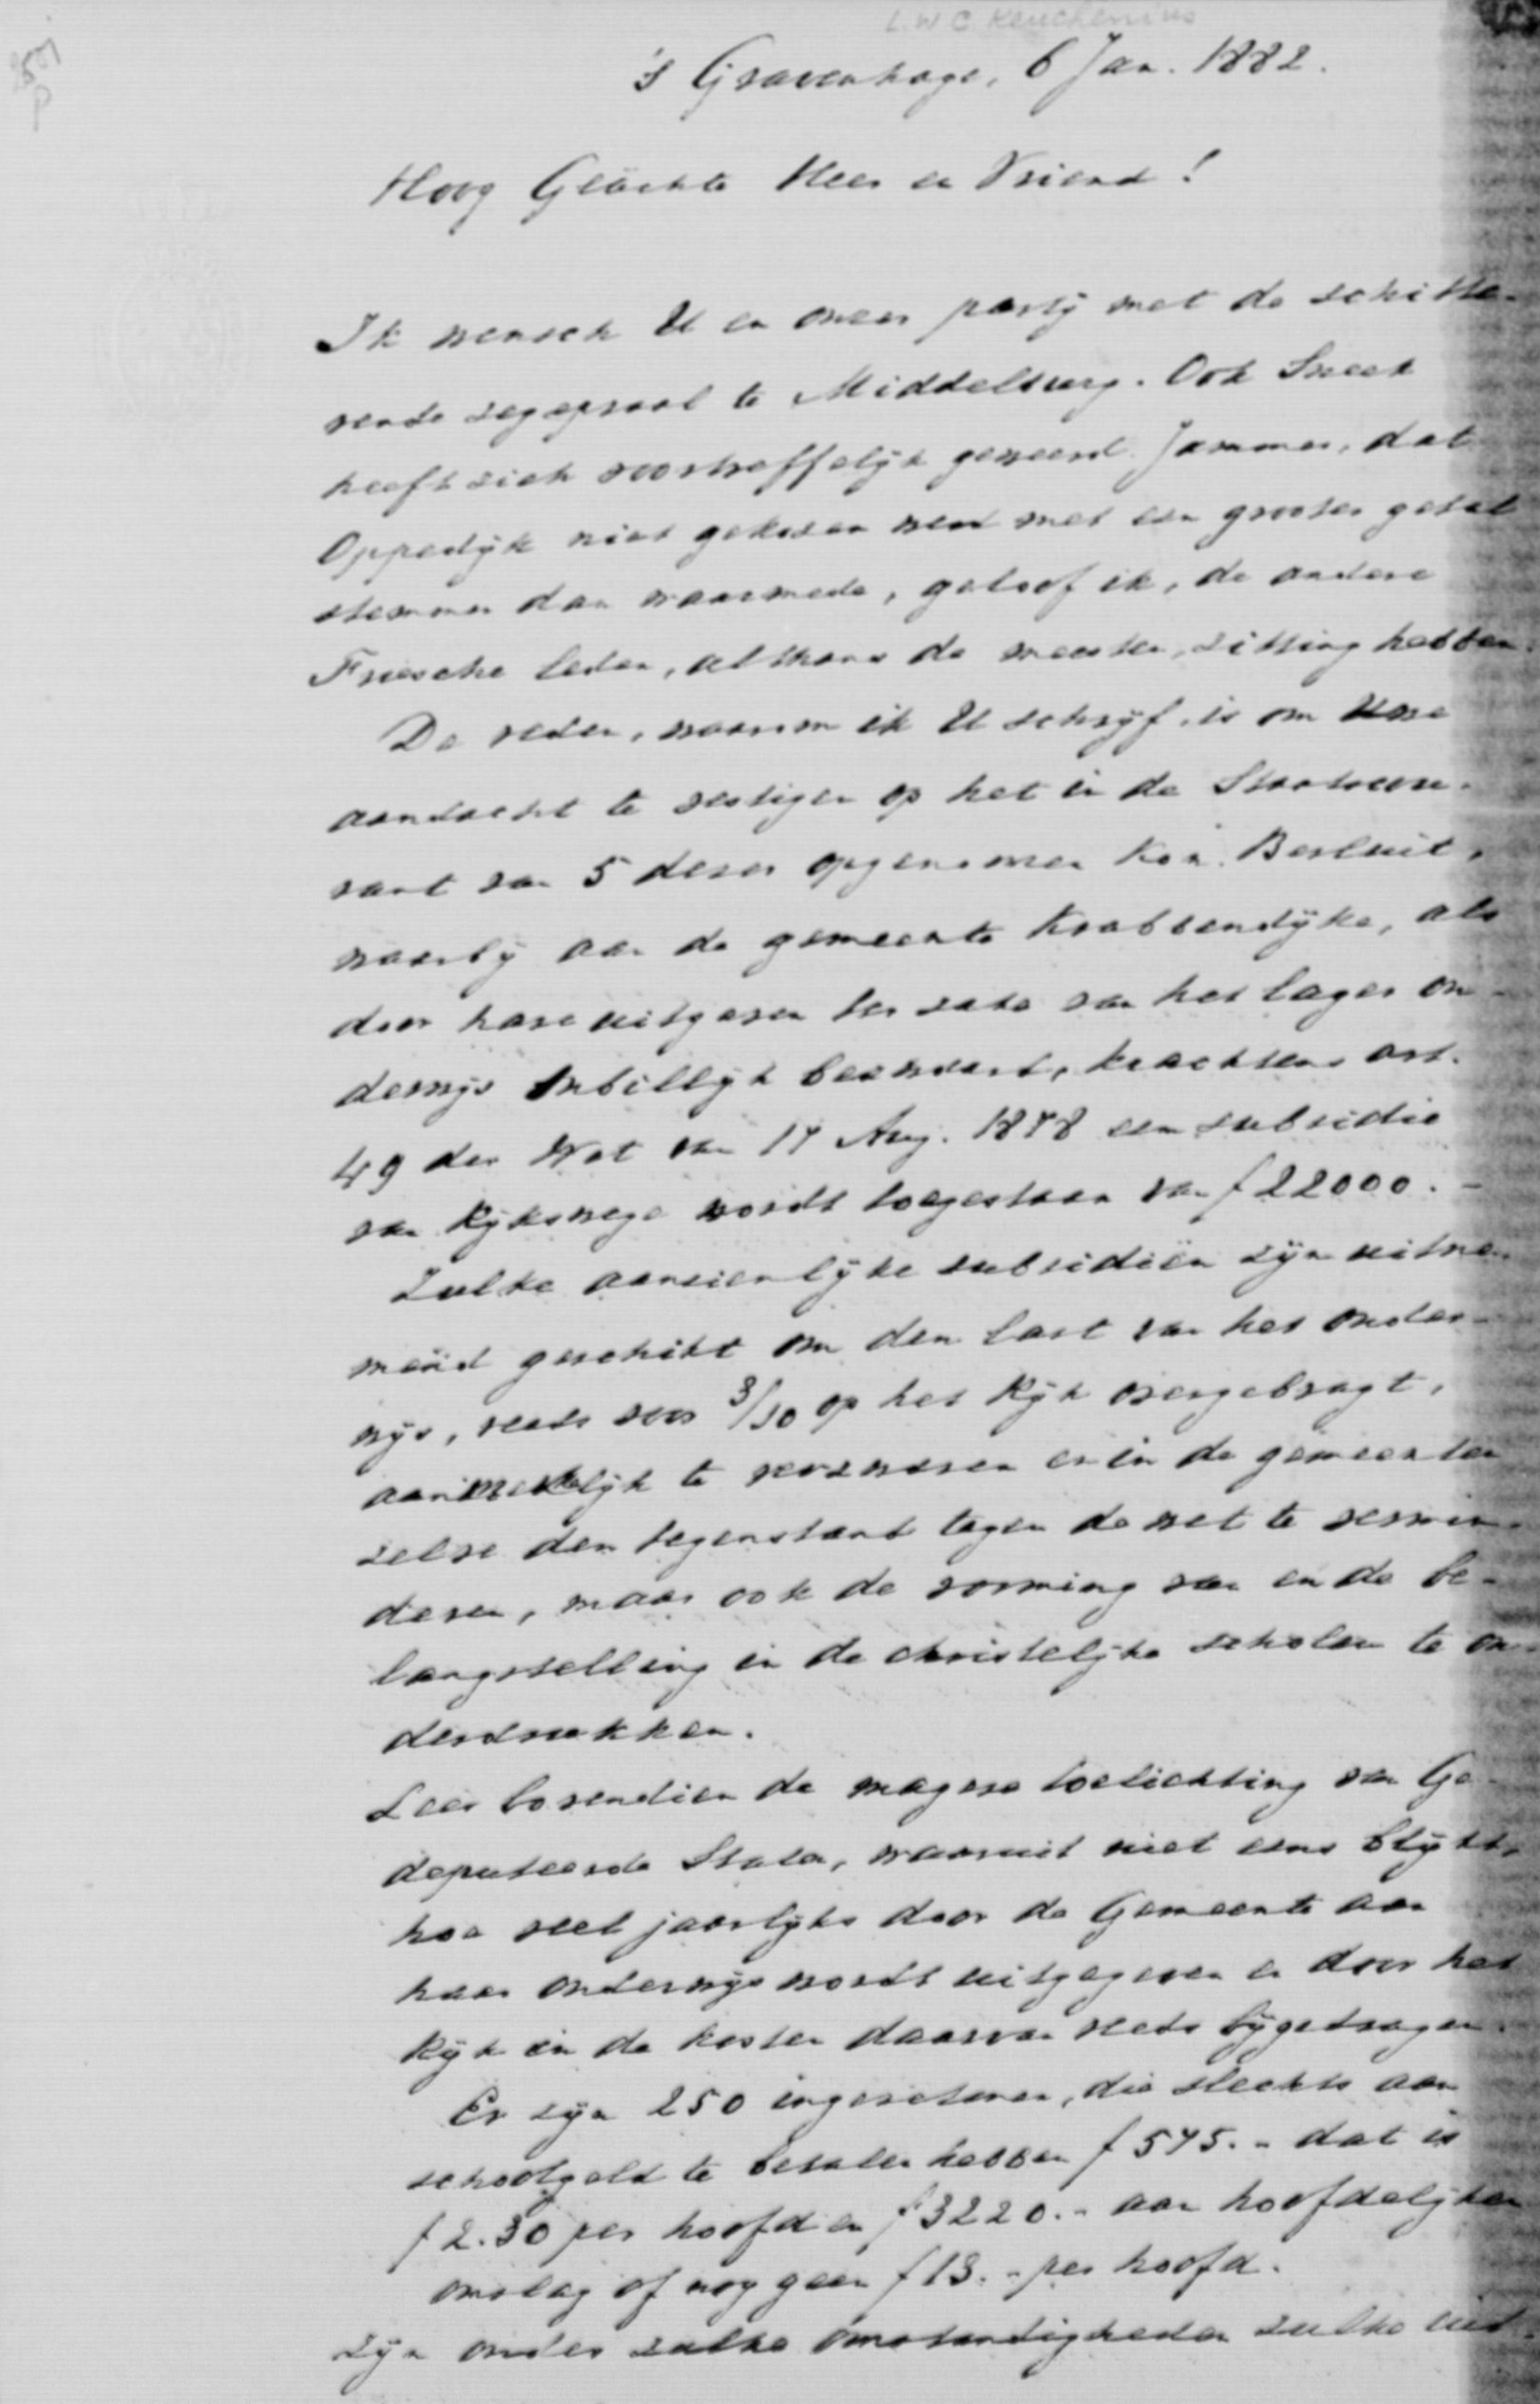 L.W.C. Keuchenius
's Gravenhage, 6 Jan. 1882.
Hoog Geachte Heer en Vriend!
Ik wensch U en onzer partij met de schitte-
rende zegepraal te Middelburg. Ook Sneek
heeft zich voortreffelijk geweerd. Jammer, dat
Oppedijk niet gekozen werd met een grooter getal
stemmen dan waarmede, geloof ik, de andere
Friesche leden, althans de meesten, zitting hebben.
De reden, waarom ik U schrijf, is om Uwe
aandacht te vestigen op het in de Staatscou-
rant van 5 dezer opgenomen Kon. Besluit,
waarbij aan de gemeente Krabbendijke, als
door hare uitgaven ter zake van het lager on-
derwijs onbillijk bezwaard, krachtens art.
49 der Wet van 17 Aug. 1878 een subsidie
van Rijkswege wordt toegestaan van f 22000.-
Zulke aanzienlijke subsidiën zijn uitne-
mend geschikt om den last van het onder-
wijs, reeds voor 3/10 op het Rijk overgebragt,
aanmerkelijk te verzwaren en in de gemeenten
zelve den tegenstand tegen de wet te vermin-
deren, maar ook de vorming van en de be-
langstelling in de christelijke scholen te on-
derdrukken.
Lees bovendien de magere toelichting van Ge-
deputeerde Staten, waaruit niet eens blijkt,
hoe veel jaarlijks door de Gemeente aan
haar onderwijs wordt uitgegeven en door het
Rijk in de kosten daarvan reeds bijgedragen.
Er zijn 250 ingezetenen, die slechts aan
schoolgeld te betalen hebben f 575.- dat is
f 2.30 per hoofd en f 3220.- aan hoofdelijken
omslag of nog geen f 13.- per hoofd.
Zijn onder zulke omstandigheden zulke uit-